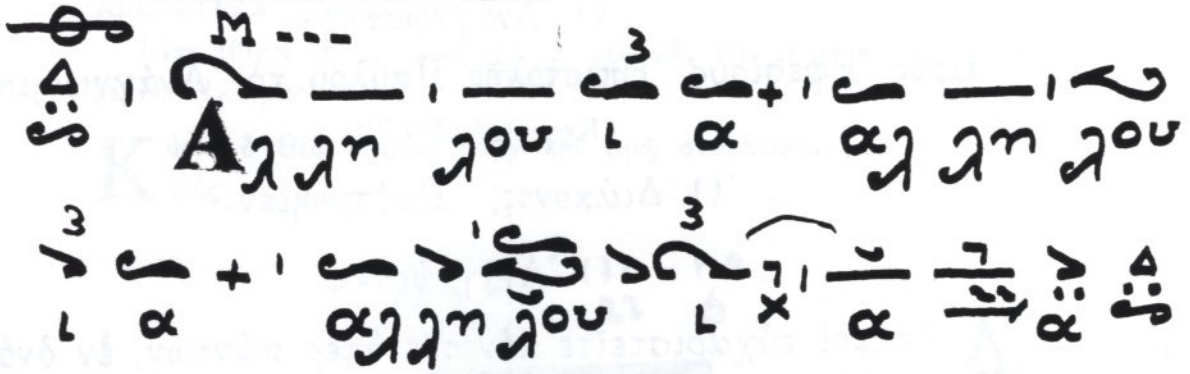 Μ
Αλ λη λου ι α + αλ λη λου
ι α + αλλη λου ι χ α α